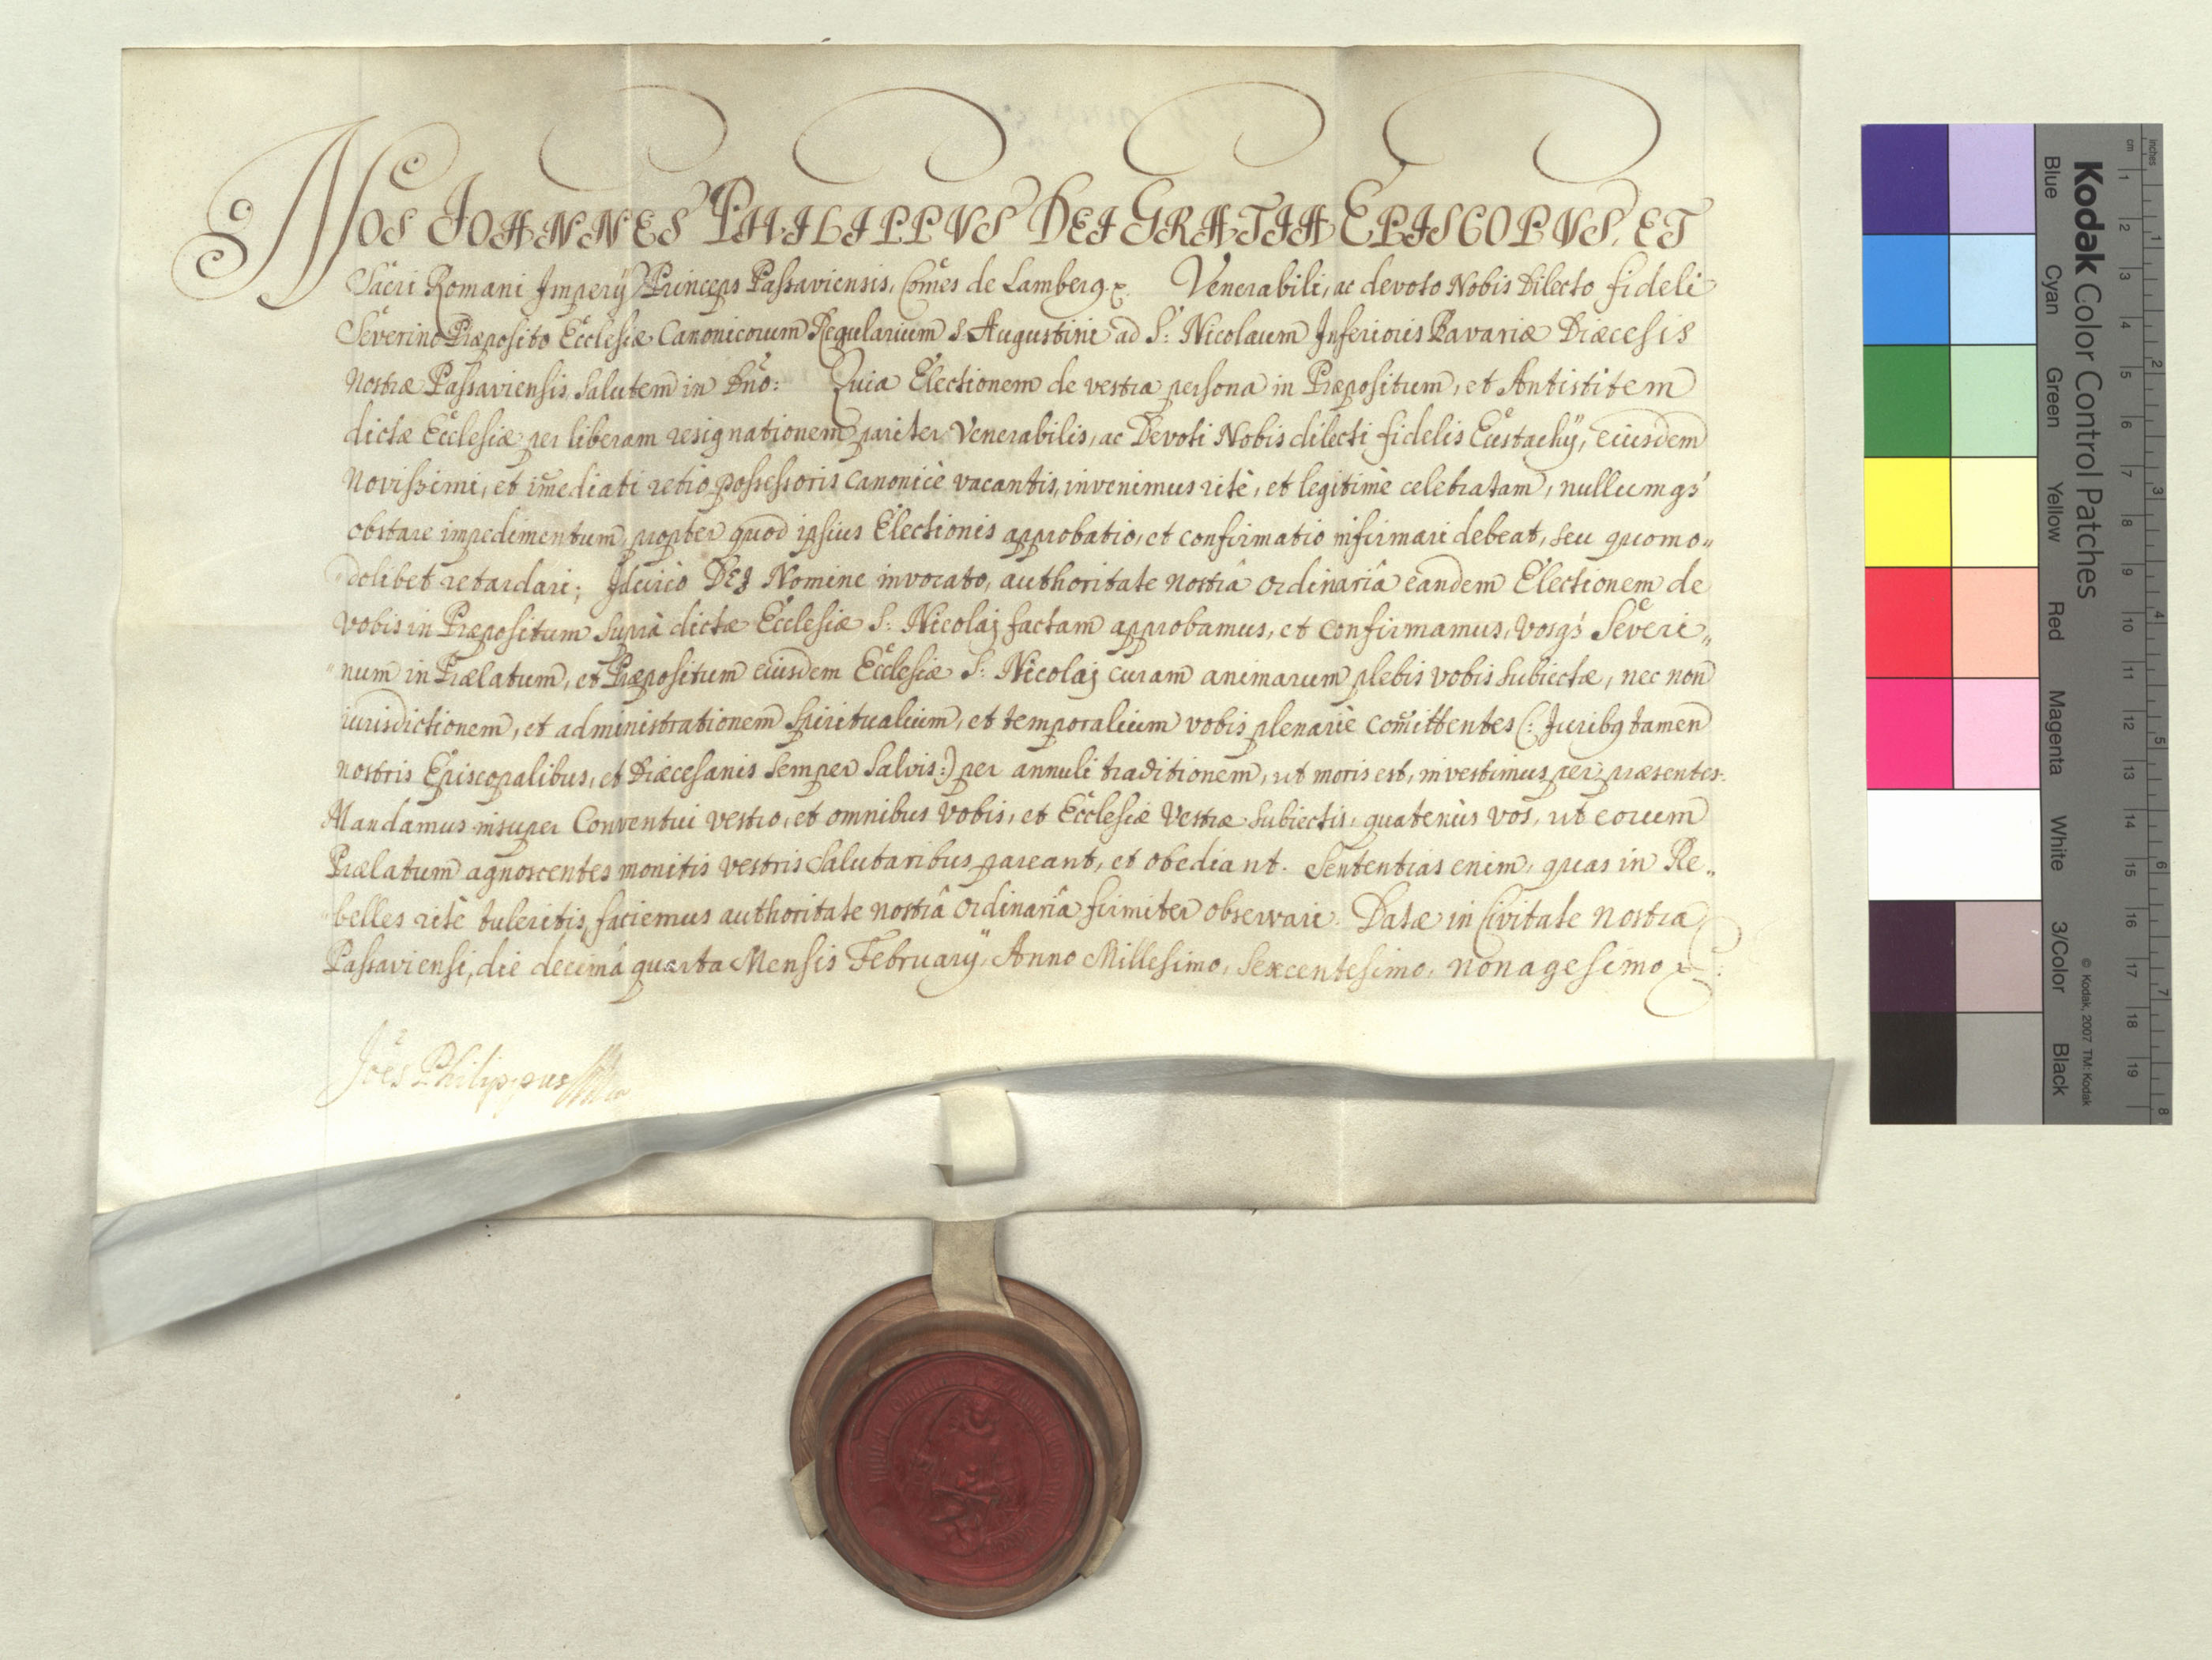 NOS JOANNES PHILIPPVS DEI GRATIA EPISCOPVS, ET
Sacri Romani Imperÿ Princeps Passaviensis, Com̃es de Lamberg. Venerabili, ac devoto Nobis Dilecto fideli
Severino Præposito Ecclesiæ Canonicorum Regularium S. Augustini ad S: Nicolaum Inferioris Bavariæ Diæcesis
Nostræ Passaviensis, Salutem in Dnõ: Quia Electionem de vestra persona in Præpositum, et Antistitem
dictæ Ecclesiæ per liberam resignationem pariter Venerabilis, ac Devoti Nobis dilecti fidelis Eustachÿ, eiusdem
Novissimi, et im̃ediati retrò possessoris canonicè vacantis, invenimus ritè, et legitimè celebratam, nullumq3
obstare impedimentum, propter quod ipsius Electionis approbatio, et confirmatio infirmari debeat, seu quomo„
„dolibet retardari; Idcirco DEI Nomine invocato, authoritate nostrâ ordinariâ eandem Electionem de
vobis in Præpositum suprà dictæ Ecclesiæ S: Nicolaj factam approbamus, et confirmamus, vosq3 Severi„
„num in Prælatum, et Præpositum eiusdem Ecclesiæ S: Nicolaj curam animarum plebis vobis subiectæ, nec non
iurisdictionem, et administrationem spiritualium, et temporalium vobis plenariè com̃ittentes (: Juribq tamen
nostris Episcopalibus, et Diæcesanis semper salvis :) per annuli traditionem, ut moris est, investimus per præsentes.
Mandamus insuper Conventui vestro, et omnibus vobis, et Ecclesiæ Vestræ subiectis, quatenùs vos, ut eorum
Prælatum agnoscentes monitis vestris salutaribus pareant, et obediant. Sententias enim, quas in Re„
„belles ritè tuleritis, faciemus authoritate nostrâ ordinariâ firmiter observari. Datæ in Civitate nostra
Passaviensi, die decimâ quarta Mensis Februarÿ, Anno Millesimo, Sexcentesimo, nonagesimo
Joẽs Philippus
Kodak Color Control Patches
Blue Cyan Green Yellow Red Magenta White 3/Color Black
© Kodak, 2007 TM: Kodak
cm 1 2 3 4 5 6 7 8 9 10 11 12 13 14 15 16 17 18 19
inches 1 2 3 4 5 6 7 8